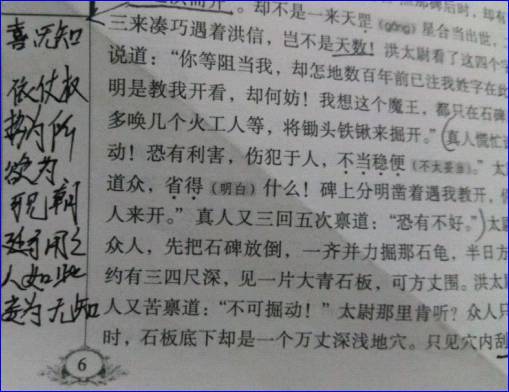 喜 无知
依仗权
势为所
欲为
用之
人如此
无知
那碑后时，却有
却不是一来天罡（gāng）星合当出世，
三来凑巧遇着洪信，岂不是天数！洪太尉看了这四个字
说道：“你等阻当我，却怎地数百年前已注我姓字在此
明是教我开看，却何妨！我想这个魔王，都只在石碑
多唤几个火工人等，将锄头铁锹来掘开。”真人慌忙
动！恐有利害，伤犯于人，不当稳便（不太妥当）。”太
道众，省得（明白）什么！碑上分明凿着遇我教开，
人来开。”真人又三回五次禀道：“恐有不好。”太
众人，先把石碑放倒，一齐并力掘那石龟，半日方
约有三四尺深，见一片大青石板，可方丈围。洪太
人又苦禀道：“不可掘动！”太尉那里肯听？众人只
时，石板底下却是一个万丈深浅地穴。只见穴内刮
6